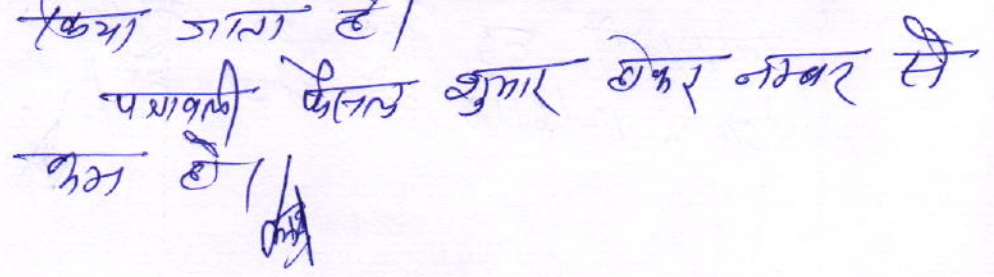 किया जाता है।
पत्रावली फैसल शुमार होकर नम्बर से
कम हो।